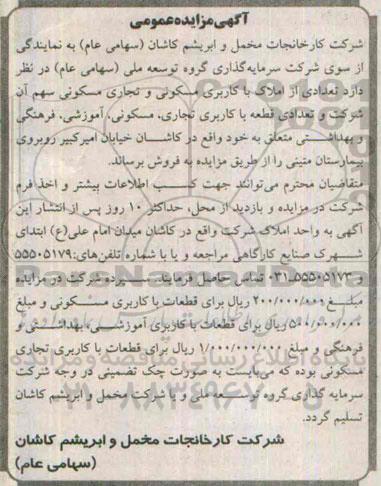 آگهی مزایده عمومی
شرکت کارخانجات مخمل و ابریشم کاشان (سهامی عام) به نمایندگی
از سوی شرکت سرمایه‌گذاری گروه توسعه ملی (سهامی عام) در نظر
دارد تعدادی از املاک با کاربری مسکونی و تجاری مسکونی سهم آن
شرکت و تعدادی قطعه با کاربری تجاری، مسکونی، آموزشی، فرهنگی
و بهداشتی متعلق به خود واقع در کاشان خیابان امیرکبیر روبروی
بیمارستان متینی را از طریق مزایده به فروش برساند.
متقاضیان محترم می‌توانند جهت کسب اطلاعات بیشتر و اخذ فرم
شرکت در مزایده و بازدید از محل، حداکثر ۱۰ روز پس از انتشار این
آگهی به واحد املاک شرکت واقع در کاشان میدان امام علی(ع) ابتدای
شهرک صنایع کارگاهی مراجعه و یا با شماره تلفن‌های: ۵۵۵۰۵۱۷۹
و ۵۵۵۰۵۱۷۳-۰۳۱ تماس حاصل فرمایند. سپرده شرکت در مزایده
مبلغ ۲۰۰/۰۰۰/۰۰۰ ریال برای قطعات با کاربری مسکونی و مبلغ
۵۰۰/۰۰۰/۰۰۰ ریال برای قطعات با کاربری آموزشی، بهداشتی و
فرهنگی و مبلغ ۱/۰۰۰/۰۰۰/۰۰۰ ریال برای قطعات با کاربری تجاری
مسکونی بوده که می‌بایست به صورت چک تضمینی در وجه شرکت
سرمایه گذاری گروه توسعه ملی و یا شرکت مخمل و ابریشم کاشان
تسلیم گردد.
شرکت کارخانجات مخمل و ابریشم کاشان
(سهامی عام)
پایگاه اطلاع رسانی مناقصه و مزایده
۰۲۱-۸۸۳۴۹۶۷۰-۵